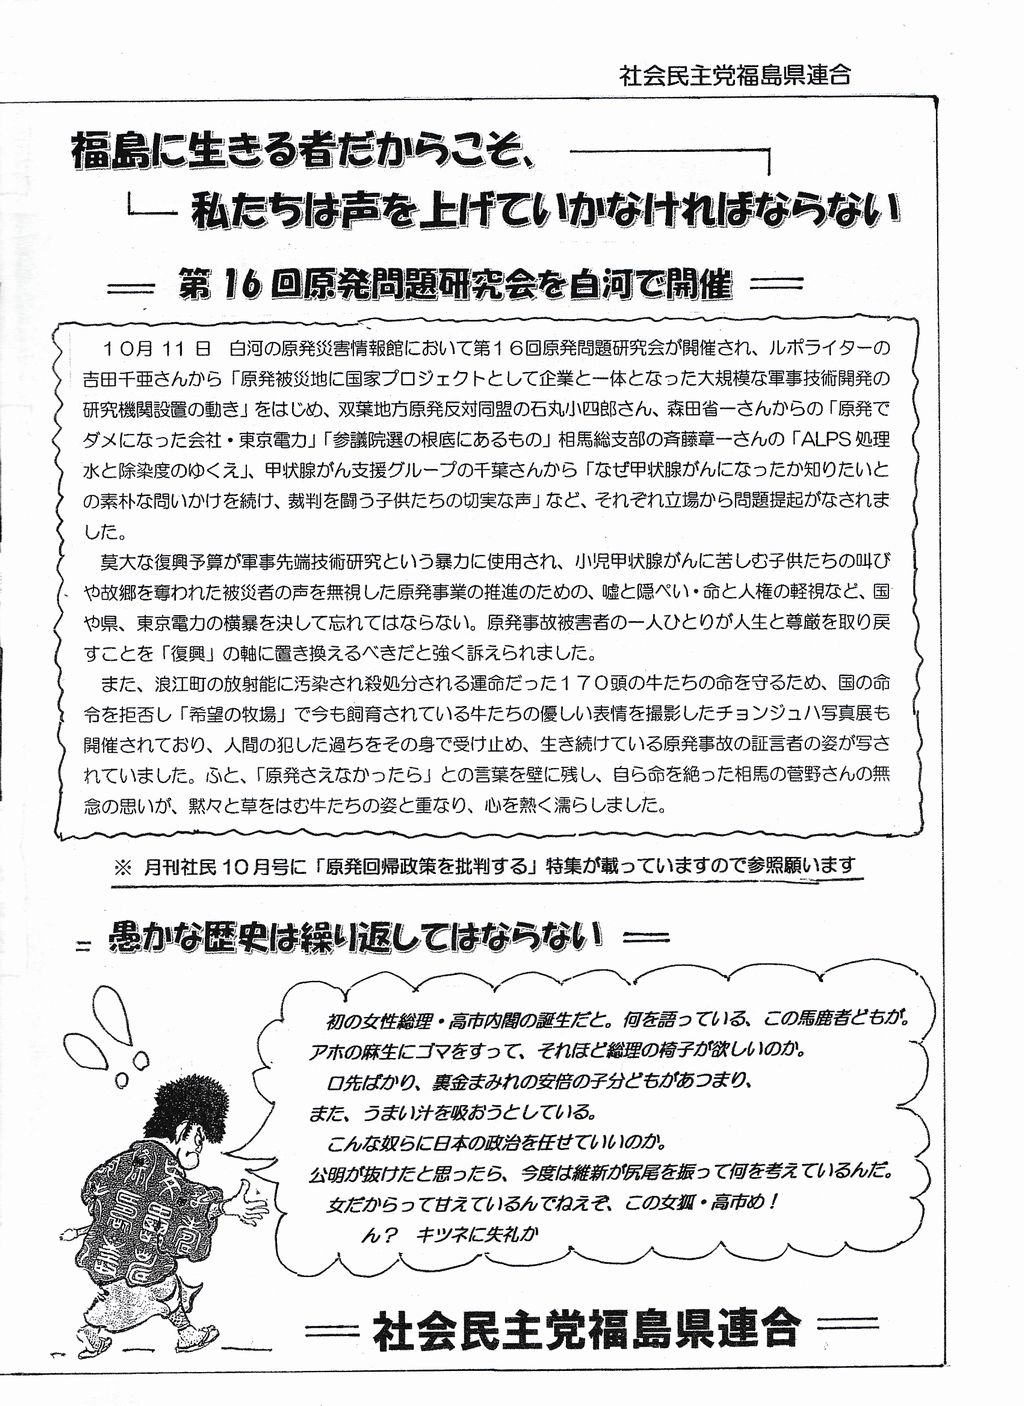 社会民主党福島県連合
福島に生きる者だからこそ、
私たちは声を上げていかなければならない
第16回原発問題研究会を白河で開催
10月11日　白河の原発災害情報館において第16回原発問題研究会が開催され、ルポライターの
吉田千亜さんから「原発被災地に国家プロジェクトとして企業と一体となった大規模な軍事技術開発の
研究機関設置の動き」をはじめ、双葉地方原発反対同盟の石丸小四郎さん、森田省一さんからの「原発で
ダメになった会社・東京電力」「参議院選の根底にあるもの」相馬総支部の斉藤章一さんの「ALPS処理
水と除染度のゆくえ」、甲状腺がん支援グループの千葉さんから「なぜ甲状腺がんになったか知りたいと
の素朴な問いかけを続け、裁判を闘う子供たちの切実な声」など、それぞれ立場から問題提起がなされま
した。
莫大な復興予算が軍事先端技術研究という暴力に使用され、小児甲状腺がんに苦しむ子供たちの叫び
や故郷を奪われた被災者の声を無視した原発事業の推進のための、嘘と隠ぺい・命と人権の軽視など、国
や県、東京電力の横暴を決して忘れてはならない。原発事故被害者の一人ひとりが人生と尊厳を取り戻
すことを「復興」の軸に置き換えるべきだと強く訴えられました。
また、浪江町の放射能に汚染され殺処分される運命だった170頭の牛たちの命を守るため、国の命
令を拒否し「希望の牧場」で今も飼育されている牛たちの優しい表情を撮影したチョンジュハ写真展も
開催されており、人間の犯した過ちをその身で受け止め、生き続けている原発事故の証言者の姿が写さ
れていました。ふと、「原発さえなかったら」との言葉を壁に残し、自ら命を絶った相馬の菅野さんの無
念の思いが、黙々と草をはむ牛たちの姿と重なり、心を熱く濡らしました。
※ 月刊社民10月号に「原発回帰政策を批判する」特集が載っていますので参照願います
= 愚かな歴史は繰り返してはならない ==
初の女性総理・高市内閣の誕生だと。何を語っている、この馬鹿者どもが。
アホの麻生にゴマをすって、それほど総理の椅子が欲しいのか。
口先ばかり、裏金まみれの安倍の子分どもがあつまり、
また、うまい汁を吸おうとしている。
こんな奴らに日本の政治を任せていいのか。
公明が抜けたと思ったら、今度は維新が尻尾を振って何を考えているんだ。
女だからって甘えているんでねえぞ、この女狐・高市め！
ん？　キツネに失礼か
社会民主党福島県連合